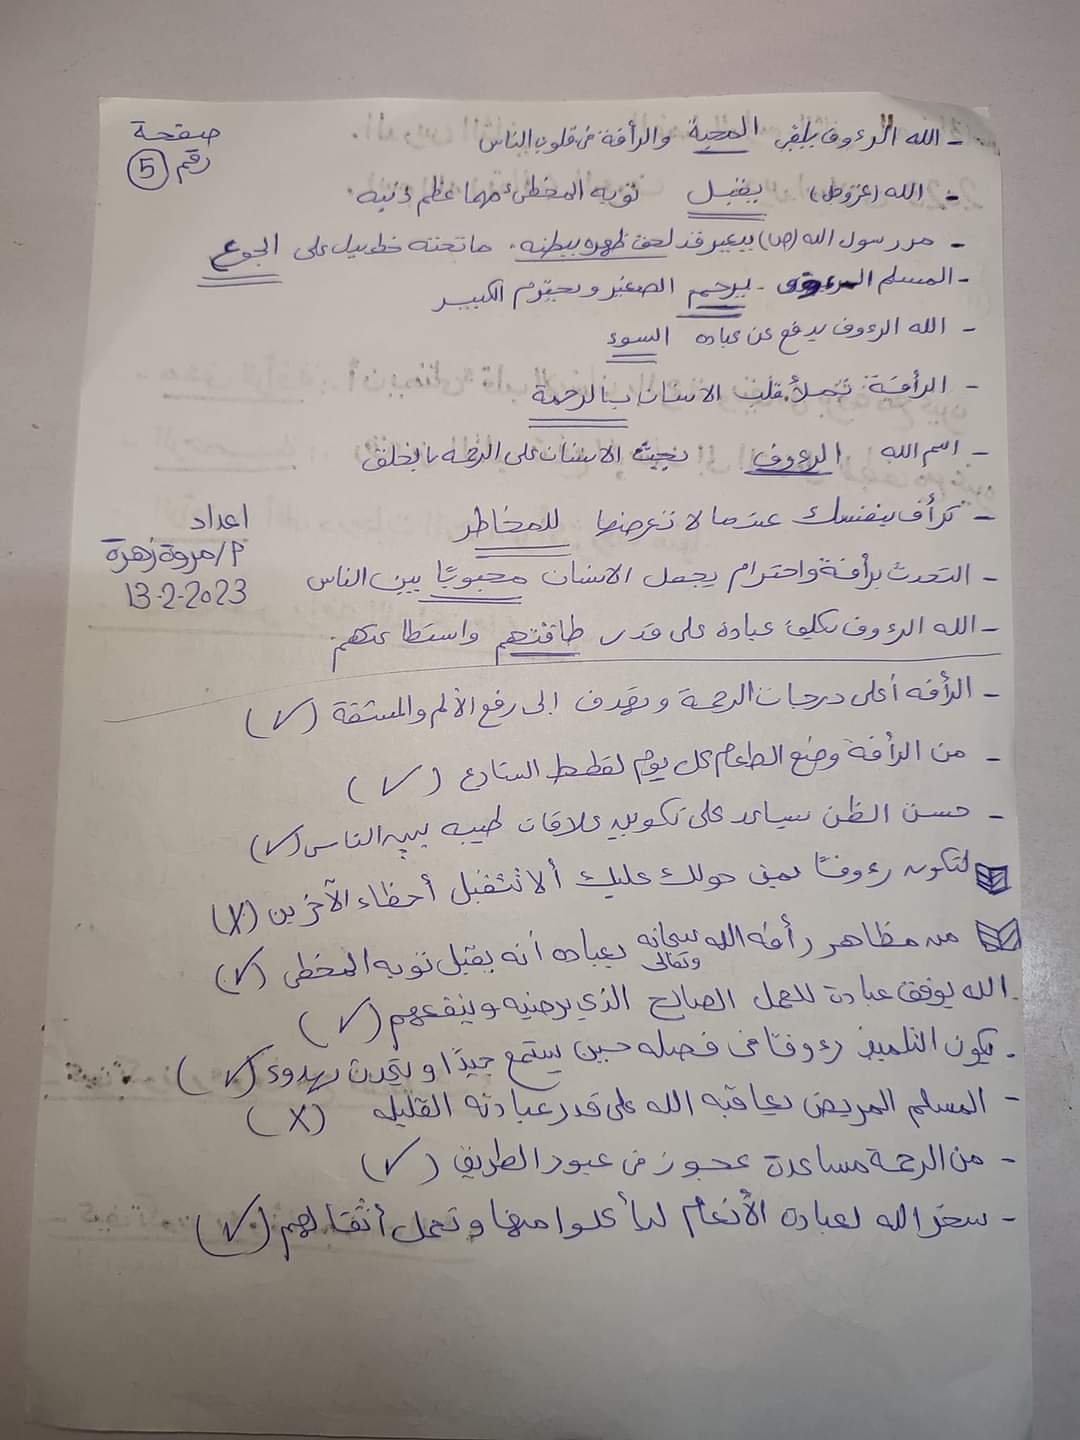 صفحة
رقم (5)
- الله الرءوف يلقى المحبة والرأفة فى قلوب الناس
- الله (عزوجل) يقبل توبه المخطئ مهما عظم ذنبه.
- مر رسول الله (ص) ببعير قد لحق ظهره ببطنه. ما تحته خط يدل على الجوع
- المسلم الرءوف يرحم الصغير ويحترم الكبير
- الله الرءوف يدفع عن عباده السوء
- الرأفة تملأ قلب الانسان بالرحمة
- اسم الله الرءوف يحث الانسان على الرحمة بالخلق
- ترأف بنفسك عندما لا تعرضها للمخاطر
- التحدث برأفة واحترام يجعل الانسان محبوبًا بين الناس
- الله الرءوف يكلف عباده على قدر طاقتهم واستطاعتهم.
اعداد
م/مروة زهرة
13-2-2023
- الرأفه أعلى درجات الرحمة وتهدف الى رفع الألم والمشقة (✓)
- من الرأفة وضع الطعام كل يوم لقطط الشارع (✓)
- حسن الظن يساعد على تكوين علاقات طيبه بين الناس (✓)
لتكون رءوفًا بمن حولك عليك ألا تتقبل أخطاء الآخرين (X)
من مظاهر رأفه الله سبحانه وتعالى بعباده أنه يقبل توبه المخطى (✓)
. الله يوفق عباده للعمل الصالح الذي يرضيه وينفعهم (✓)
. يكون التلميذ رءوفا فى فصله حين يستمع جيدًا ويتحدث بهدوء (✓)
- المسلم المريض يعاقبه الله على قدر عبادته القليله (X)
- من الرحمة مساعدة عجوز فى عبور الطريق (✓)
- سخر الله لعباده الأنعام ليأكلوا منها وتحمل أثقالهم (✓)